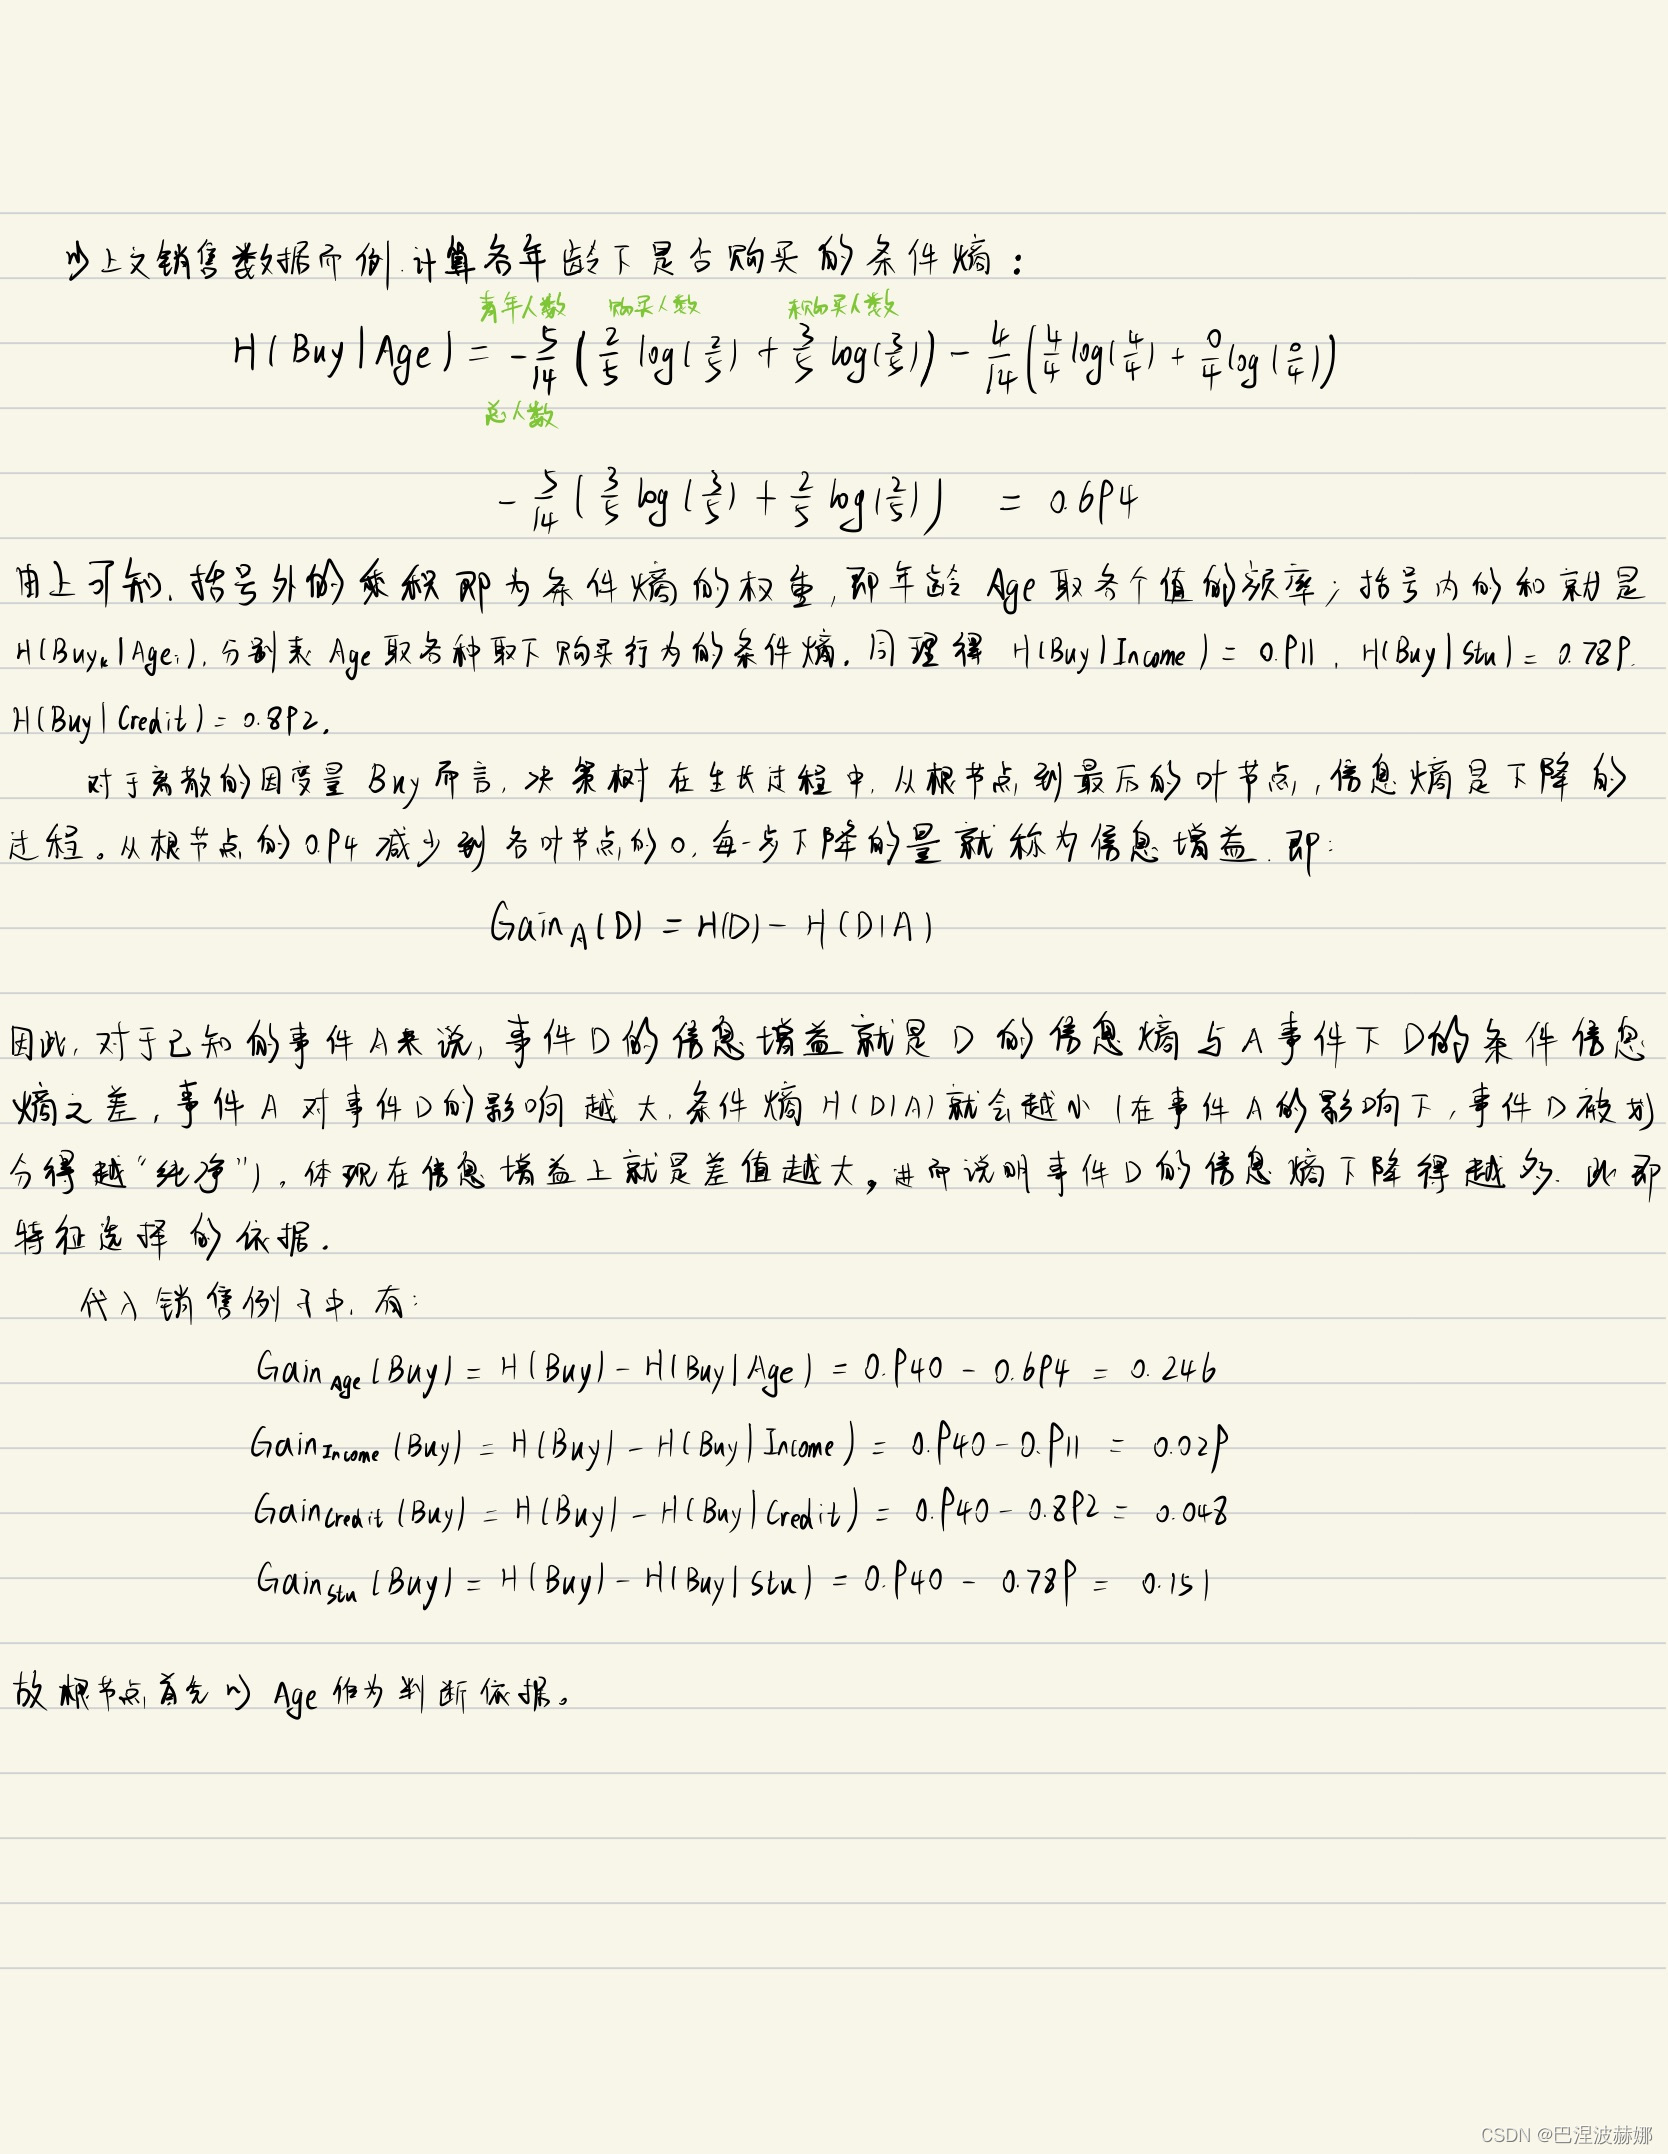 以上文销售数据而例.计算各年龄下是否购买的条件熵：
青年人数 购买人数 未购买人数
H(Buy|Age) = -5/14 (2/5 log(2/5) + 3/5 log(3/5)) - 4/14 (4/4 log(4/4) + 0/4 log(0/4))
总人数
-5/14 (3/5 log(3/5) + 2/5 log(2/5)) = 0.694
由上可知，括号外的乘积即为条件熵的权重，即年龄 Age 取各个值的频率；括号内的和就是
H(Buyₖ|Ageᵢ)，分别表 Age 取各种取下购买行为的条件熵．同理得 H(Buy|Income) = 0.911，H(Buy|Stu) = 0.789．
H(Buy|Credit) = 0.892．
对于离散的因变量 Buy 而言，决策树在生长过程中，从根节点到最后的叶节点，信息熵是下降的
过程。从根节点的0.94 减少到各叶节点的0，每一步下降的量就称为信息增益．即：
Gain_A(D) = H(D) - H(D|A)
因此，对于已知的事件A来说，事件D的信息增益就是D的信息熵与A事件下D的条件信息
熵之差，事件A对事件D的影响越大，条件熵H(D|A)就会越小（在事件A的影响下，事件D被划
分得越“纯净”），体现在信息增益上就是差值越大，进而说明事件D的信息熵下降得越多．此即
特征选择的依据．
代入销售例子中，有：
Gain_Age(Buy) = H(Buy) - H(Buy|Age) = 0.940 - 0.694 = 0.246
Gain_Income(Buy) = H(Buy) - H(Buy|Income) = 0.940 - 0.911 = 0.029
Gain_Credit(Buy) = H(Buy) - H(Buy|Credit) = 0.940 - 0.892 = 0.048
Gain_Stu(Buy) = H(Buy) - H(Buy|Stu) = 0.940 - 0.789 = 0.151
故根节点首先以 Age 作为判断依据。
CSDN @巴涅波赫娜